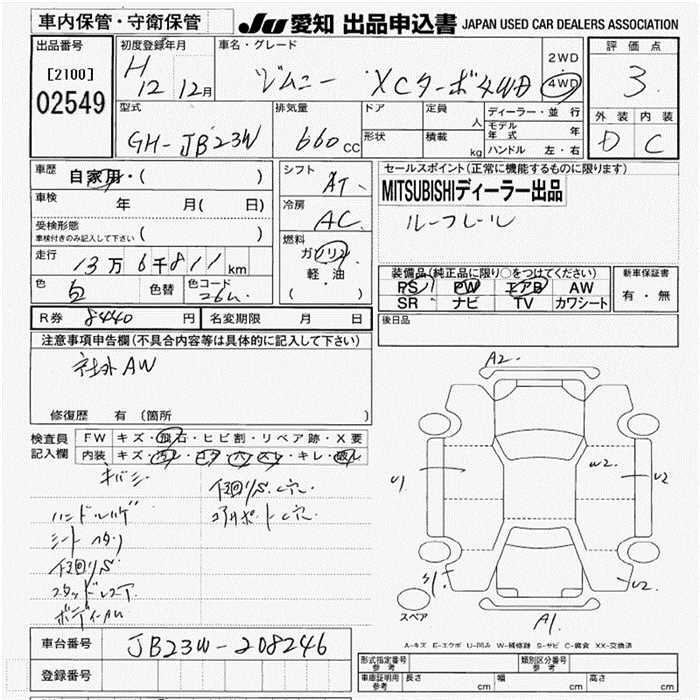 車内保管・守衛保管
JU 愛知 出品申込書 JAPAN USED CAR DEALERS ASSOCIATION
出品番号
[2100]
02549
初度登録年月
H
12 12月
車名・グレード
ジムニー XCターボ4WD
2WD
4WD
評価点
3
外装 内装
D C
型式
GH-JB23W
排気量
660 cc
ドア
形状
定員 人
積載 kg
ディーラー・並行
モデル年式 年
ハンドル 左・右
車歴 自家用・( )
車検 年 月( 日)
受検形態
車検付きのみ記入して下さい ( )
走行 13万6千811 km
色 白 色替 色コード 26U
シフト AT
冷房 AC
燃料
ガソリン
軽・油
( ・ )
セールスポイント(正常に機能するものに限ります)
MITSUBISHIディーラー出品
ルーフレール
装備品(純正品に限り○をつけてください)
PS PW エアB AW
SR ナビ TV カワシート
新車保証書
有・無
後日品
R券 8440 円 名変期限 月 日
注意事項申告欄(不具合内容等は具体的に記入して下さい)
社外AW
修復歴 有(箇所 )
検査員
記入欄
FW キズ・飛石・ヒビ割・リペア跡・X要
内装 キズ・汚レ・コゲ・穴・スレ・キレ・破レ
キバミ
ハンドルハゲ
シートヘタリ
下廻りS
スタッドレスタイヤ
下廻りS.穴
コアサポート穴
A2
U1
W2
U2
S1
U2
A1
スペア
A-キズ E-エクボ U-凹み W-補修跡 S-サビ C-腐食 XX-交換済
車台番号 JB23W-208246
登録番号
形式指定番号
参考
類別区分番号
参考
車庫証明用
参考
長さ cm 幅 cm 高さ cm